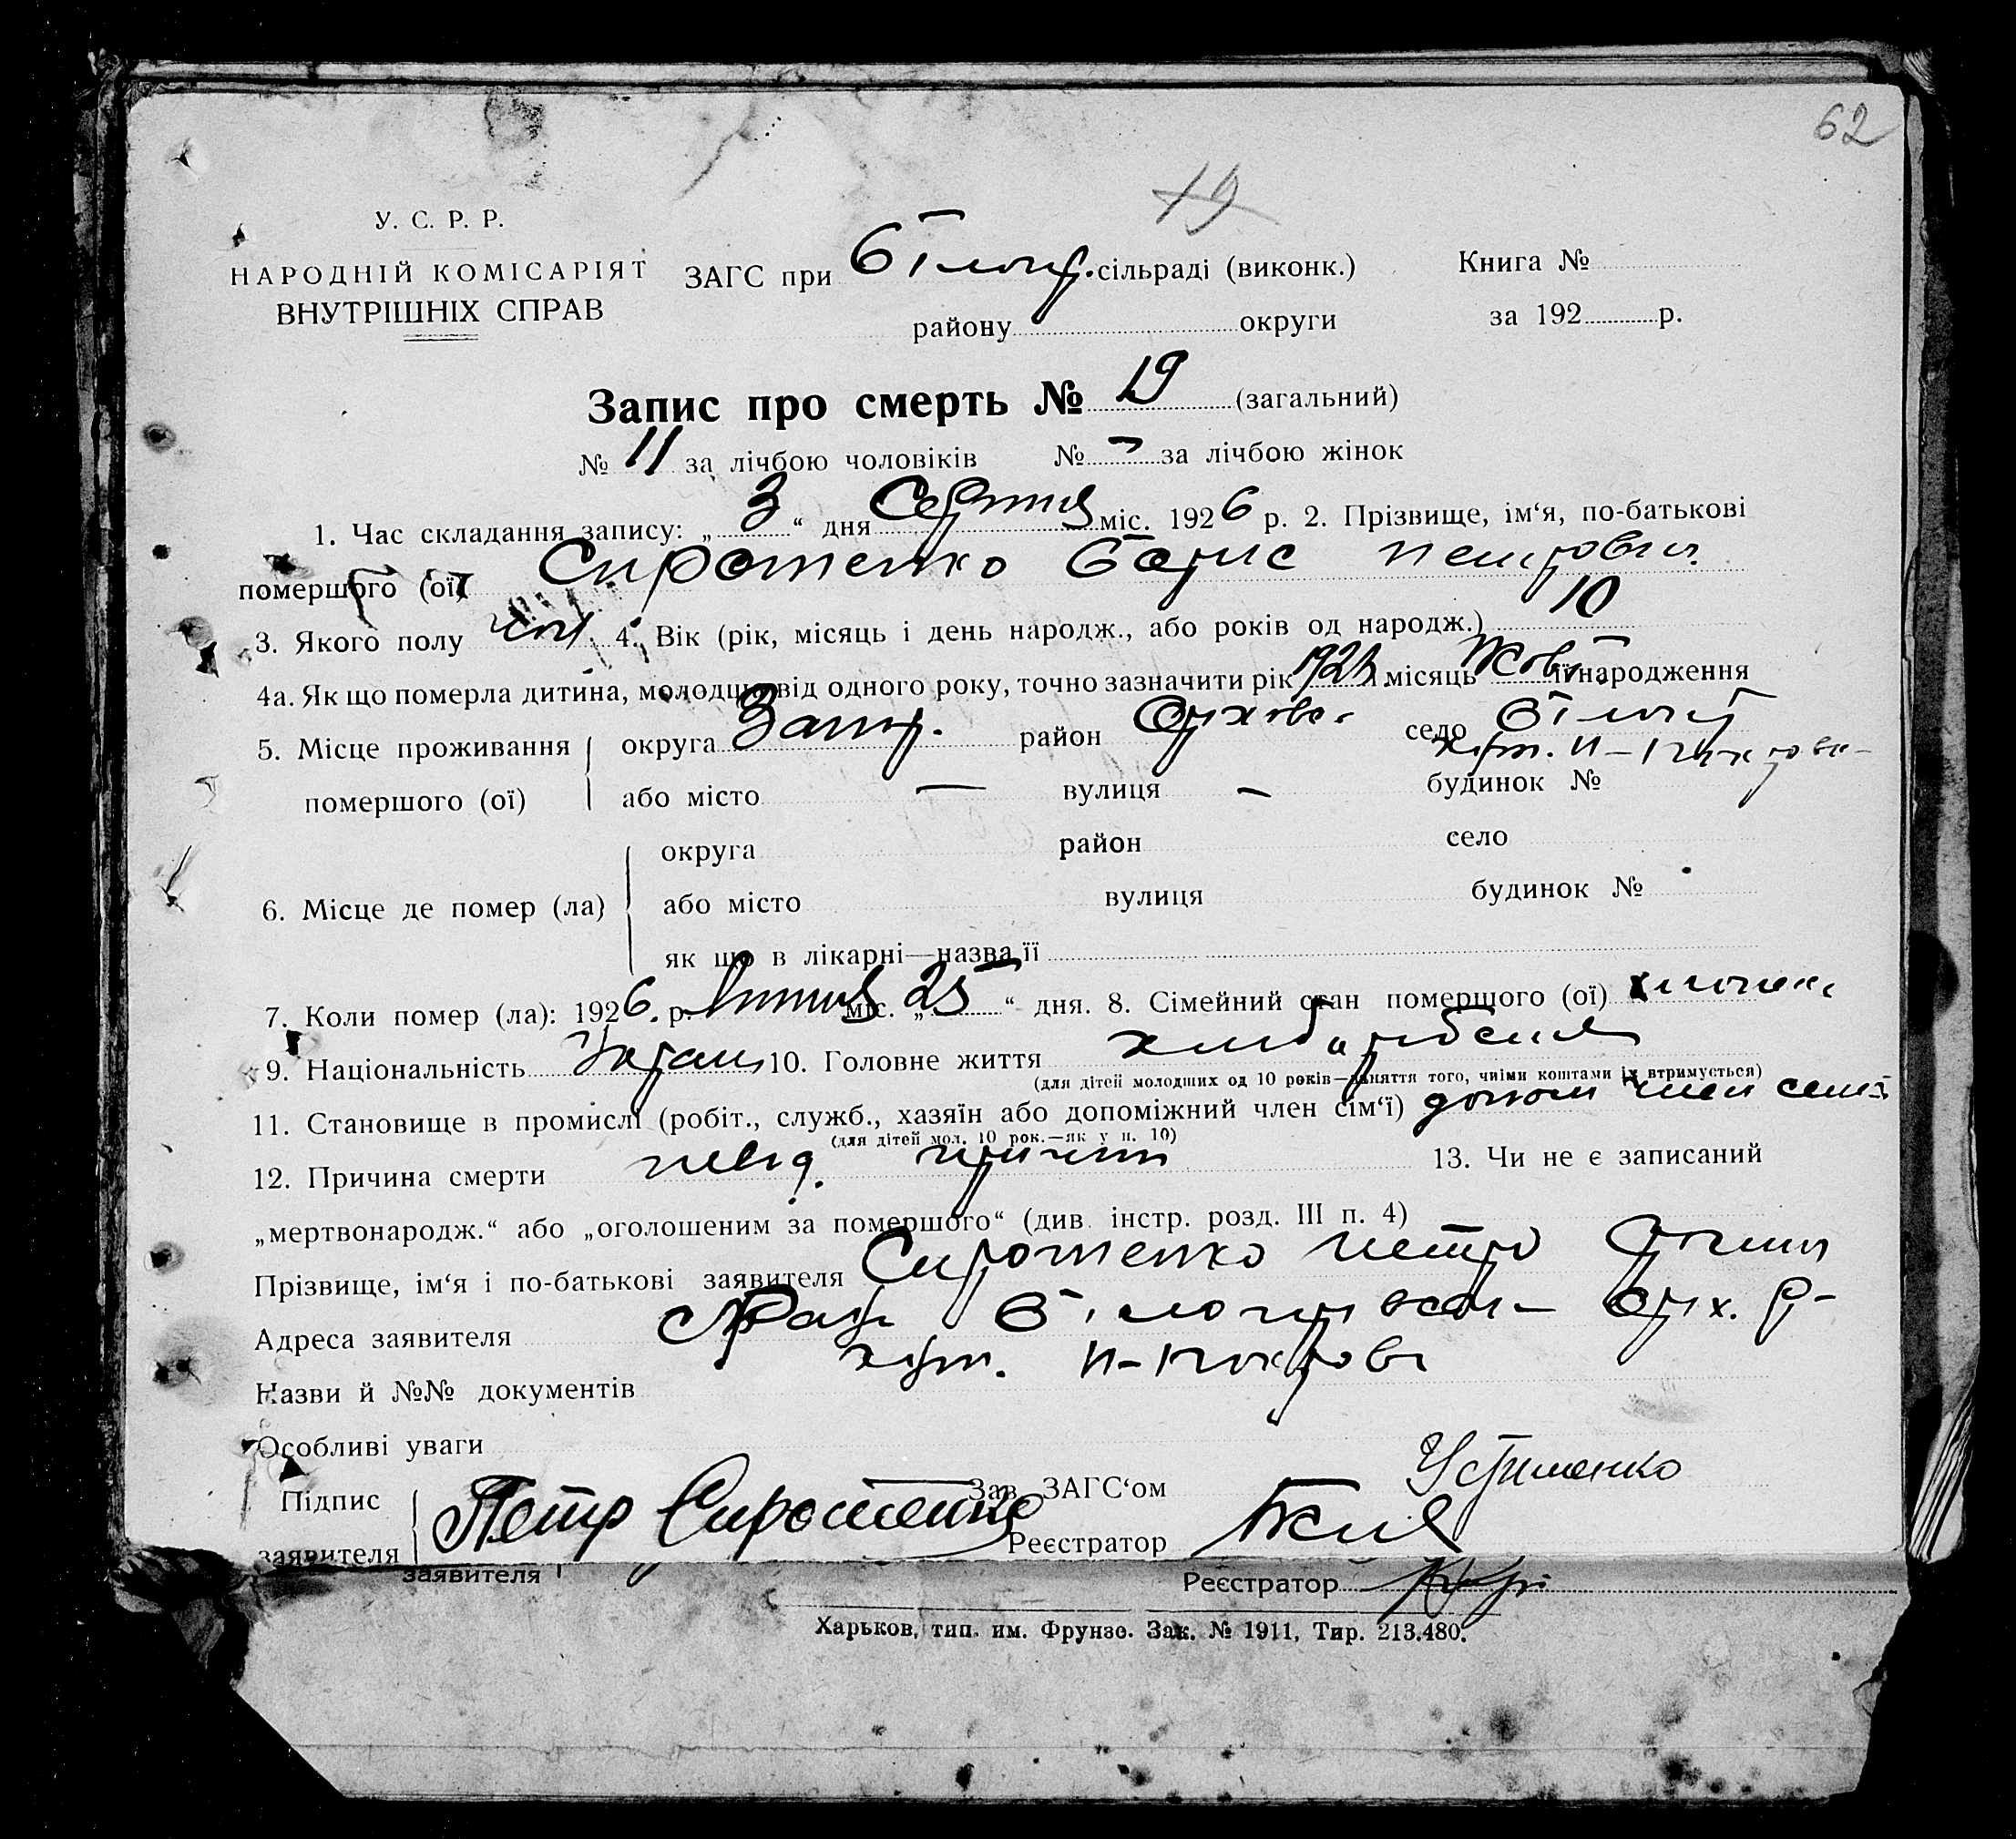 62
19
У. С. Р. Р.
НАРОДНІЙ КОМІСАРІЯТ
ВНУТРІШНІХ СПРАВ
ЗАГС при сільраді (виконк.) Книга №
району округи за 192 р.
Запис про смерть № 19 (загальний)
№ 11 за лічбою чоловіків № - за лічбою жінок
1. Час складання запису: „ 3 “ дня Серпня міс. 1926 р. 2. Прізвище, ім‘я, по-батькові
помершого (ої) Сиротенко Борис Петрович
3. Якого полу чол. 4. Вік (рік, місяць і день народж., або років од народж.) 10
4а. Як що померла дитина, молодша від одного року, точно зазначити рік місяць Жовт її народження
5. Місце проживання округа Запор. район Оріхівс. село Білог
помершого (ої) або місто — вулиця — будинок №
хут. Н-Покровк-
округа район село
6. Місце де помер (ла) або місто вулиця будинок №
як що в лікарні—назва її
7. Коли помер (ла): 1926. р. Липня міс. „ 25 “ дня. 8. Сімейний стан померщого (ої) хлопець
9. Національність Україн 10. Головне життя хлибаробсния
(для дітей молодших од 10 років—заняття того, чиїми коштами їх втримується)
11. Становище в промислі (робіт., служб., хазяїн або допоміжний член сім‘ї) допом член семї
(для дітей мол. 10 рок.—як у п. 10)
12. Причина смерти невід. причини 13. Чи не є записаний
„мертвонародж.“ або „оголошеним за помершого“ (див. інстр. розд. III п. 4)
Прізвище, ім‘я і по-батькові заявителя Сиротенко Петро
Адреса заявителя Оріх. р-
хут. Н-Покров
Назви й №№ документів
Особливі уваги
Підпис Зав. ЗАГС‘ом Устименко
заявителя Петр Сиротенко Реєстратор
заявителя Реєстратор
Харьков, тип. им. Фрунзе. Зак. № 1911, Тир. 213.480.